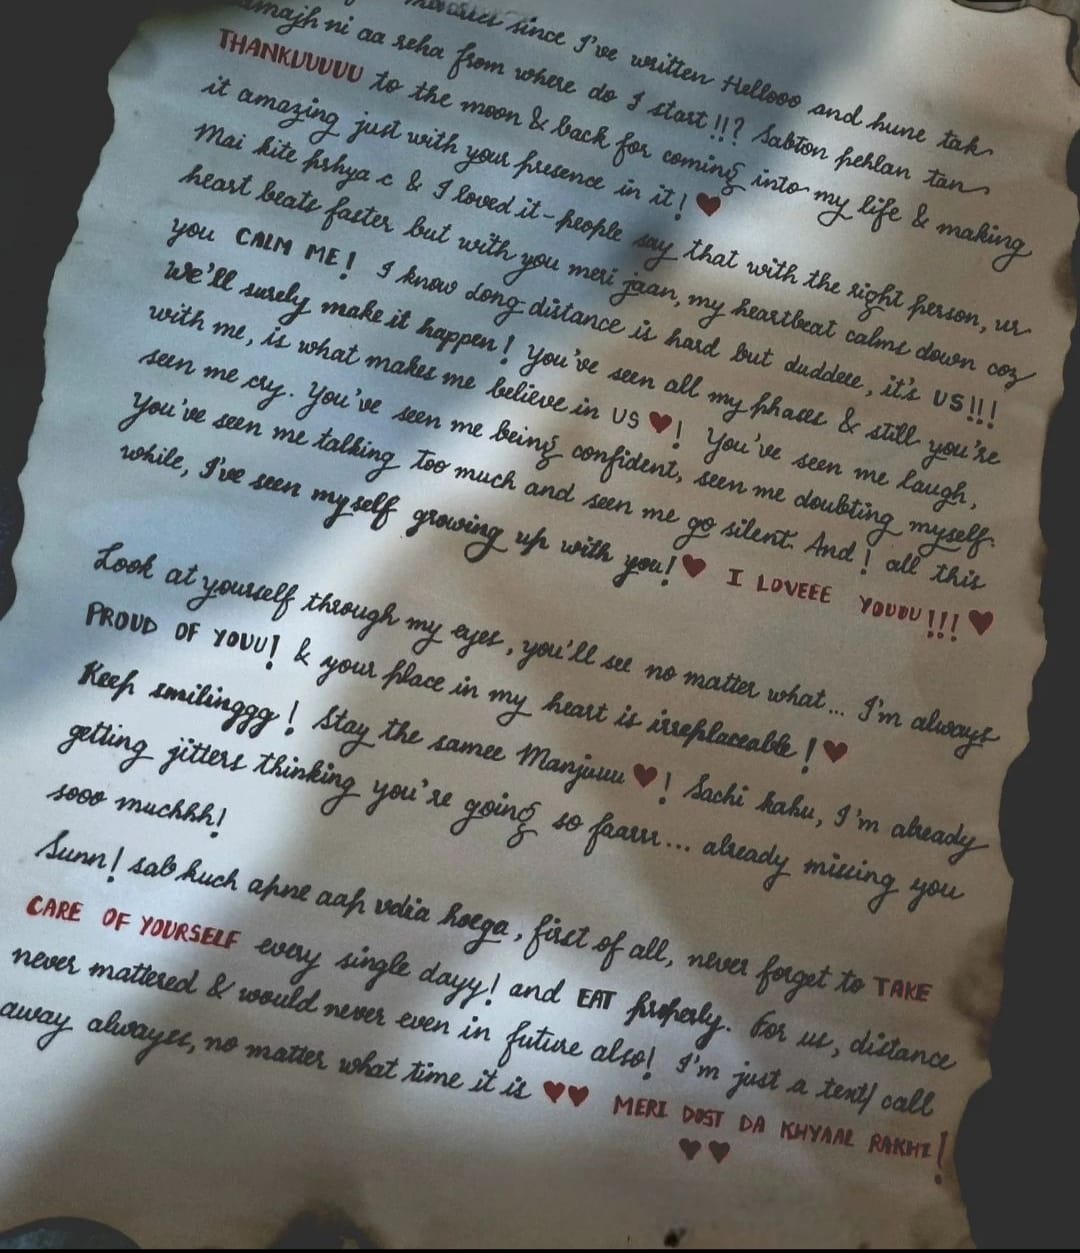 since I've written Hellooo and hune tak
samajh ni aa reha from where do I start!!? Sabton pehlan tan
THANKUUUUU to the moon & back for coming into my life & making
it amazing just with your presence in it! ❤
Mai kite prhya c & I loved it - people say that with the right person, ur
heart beats faster but with you meri jaan, my heartbeat calms down coz
you CALM ME! I know Long-distance is hard but duddeee, it's US!!!
We'll surely make it happen! You've seen all my phases & still you're
with me, is what makes me believe in US ❤! You've seen me laugh,
seen me cry. You've seen me being confident, seen me doubting myself.
You've seen me talking too much and seen me go silent. And! all this
while, I've seen myself growing up with you! ❤ I LOVEEE YOUUU!!! ❤
Look at yourself through my eyes, you'll see no matter what... I'm always
PROUD OF YOUU! & your place in my heart is irreplaceable! ❤
Keep smilinggg! Stay the samee Manjuuu ❤! Sachi kahu, I'm already
getting jitters thinking you're going so faarrr... already missing you
sooo muchhh!
Sunn! sab kuch apne aap vdia hoega, first of all, never forget to TAKE
CARE OF YOURSELF every single dayy! and EAT properly. For us, distance
never mattered & would never even in future also! I'm just a text/call
away alwayss, no matter what time it is ❤❤ MERI DOST DA KHYAAL RAKHI!
❤❤